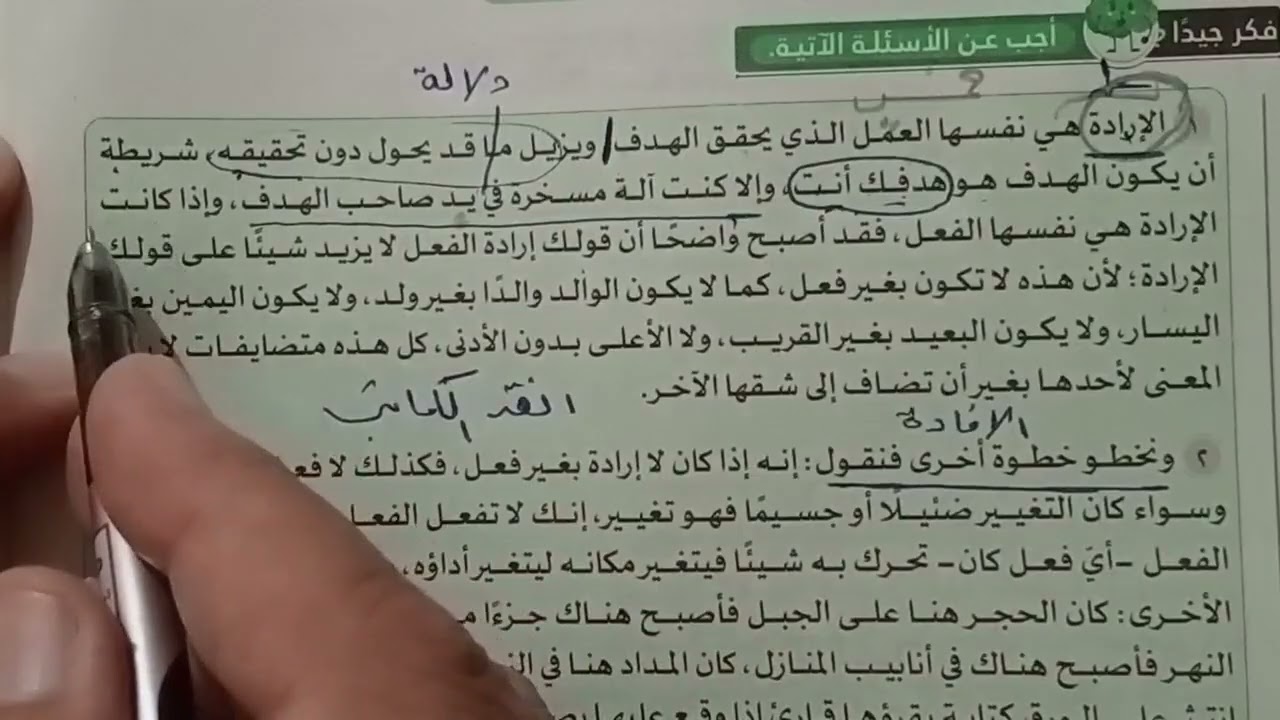 فكر جيدًا
أجب عن الأسئلة الآتية.
دلالة
١ الإرادة هي نفسها العمل الذي يحقق الهدف ويزيل ما قد يحول دون تحقيقه، شريطة
أن يكون الهدف هو هدفك أنت، وإلا كنت آلة مسخرة في يد صاحب الهدف، وإذا كانت
الإرادة هي نفسها الفعل، فقد أصبح واضحًا أن قولك إرادة الفعل لا يزيد شيئًا على قولك
الإرادة؛ لأن هذه لا تكون بغير فعل، كما لا يكون الوالد والدًا بغير ولد، ولا يكون اليمين
اليسار، ولا يكون البعيد بغير القريب، ولا الأعلى بدون الأدنى، كل هذه متضايفات
المعنى لأحدها بغير أن تضاف إلى شقها الآخر.
٢ ونخطو خطوة أخرى فنقول: إنه إذا كان لا إرادة بغير فعل، فكذلك لا
وسواء كان التغيير ضئيلًا أو جسيمًا فهو تغيير، إنك لا تفعل
الفعل -أيّ فعل كان- تحرك به شيئًا فيتغير مكانه ليتغير أداؤه،
الأخرى: كان الحجر هنا على الجبل فأصبح هناك جزءًا
النهر فأصبح هناك في أنابيب المنازل، كان المداد هنا في